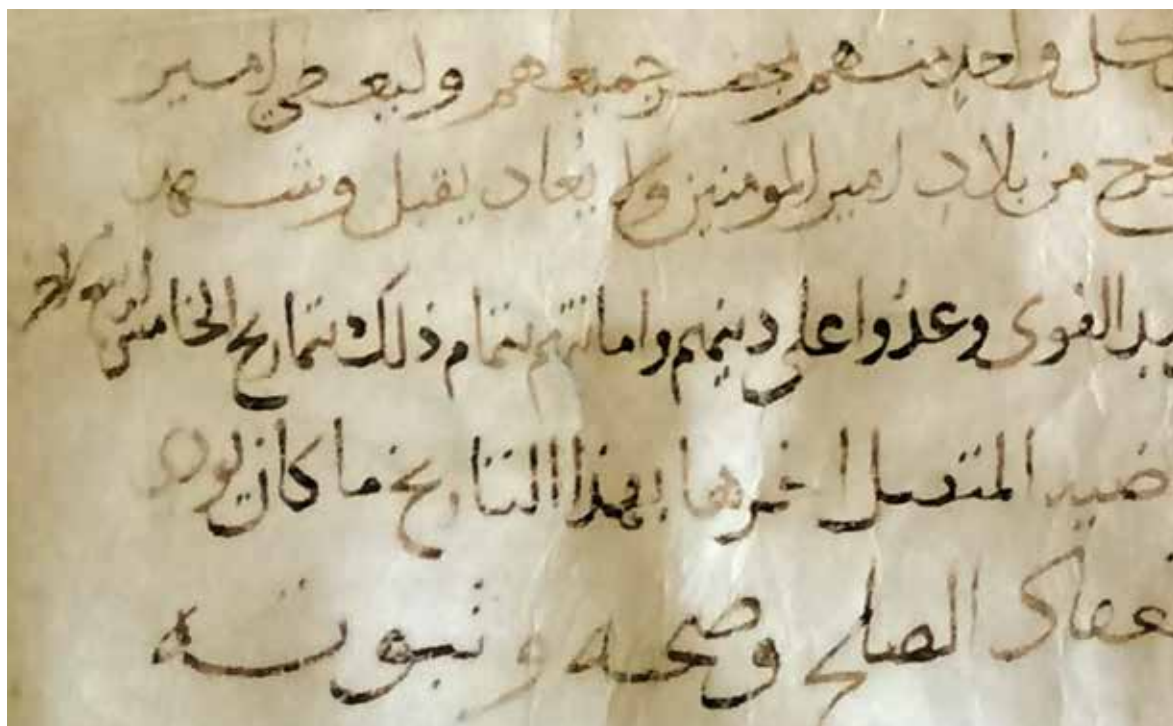 كل واحد منهم بحضر جميعهم ولبعض امير
من بلاد امير المومنين ولا يعاد يقبل وشهد
القوى وعدوا على دينهم وامانتهم بتمام ذلك بتاريخ الخامس
المتصل اخرها بهذا التاريخ ما كان
الصلح وصحه وثبوته